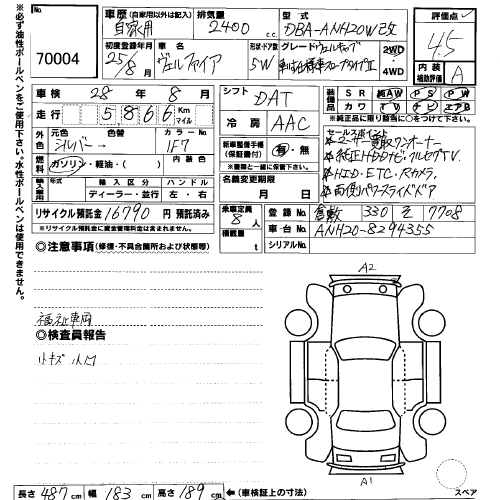 ※必ず油性ボールペンをご使用下さい。水性ボールペンは使用できません。
No.
70004
車歴 (自家用以外は記入)
自家用
排気量
2400
c.c.
型式
DBA-ANH20W改
評価点
4.5
初度登録年月
25年
8月
車名
ヴェルファイア
形状・ドア数
5W
グレード
2WD
・4WD
内装
補助評価
A
車検
28年8月
シフト
DAT
装備品
SR
純AW
PS
PW
カワ
TV
ナビ
エアB
※純正品に限り該当に○をつけて下さい。
走行
5866
Km
マイル
冷房
AAC
外色
元色
シルバー→
色替
カラーNo.
1F7
新車整備手帳
(保証書付)
有・無
※書類と一緒に保管して下さい。
セールスポイント
・ユーザー買取ワンオーナー
・純正HDDナビ・フルセグTV
・HID・ETC・Rカメラ
・両側パワースライドドア
燃料
ガソリン・軽油・( )
内装色
輸入車用
年式
輸入区分
ディーラー・並行
ハンドル
左・右
名義変更期限
月 日
リサイクル預託金
16790
円
預託済み
※リサイクル預託金に資金管理料金は含まれません。
乗車定員
8
人
積載量
t
登録No.
倉敷
330
そ
7708
車台No.
ANH20-8294355
シリアルNo.
◎注意事項(修復・不具合箇所および状態等)
福祉車両
◎検査員報告
小キズ 小凹
A2
A1
スペア
長さ
487
cm
幅
183
cm
高さ
189
cm
(車検証上の寸法)